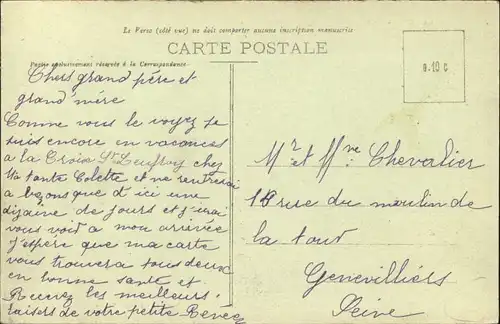 Le Verso (côté vue) ne doit comporter aucune inscription manuscrite
CARTE POSTALE
Partie exclusivement réservée à la Correspondance
0.10 c
Chers grand père et
grand'mère
Comme vous le voyez je
suis encore en vacances
a la Croix St Leufroy chez
Ma tante Colette et ne rentrerai
a bezons que d'ici une
dizaine de jours et j'irai
vous voit a mon arrivée
J'espère que ma carte
vous trouvera tous deux
en bonne santé et
Recevez les meilleurs
baisers de votre petite Renée
Mr et Mme Chevalier
13 rue du moulin de
la tour
Genevilliers
Seine